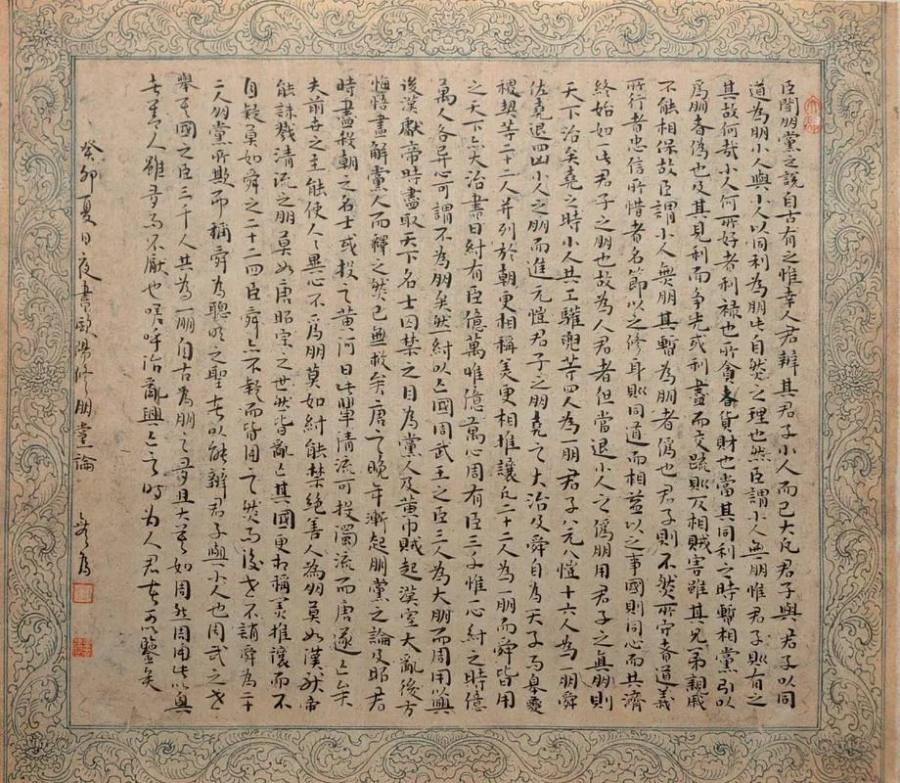 臣聞朋黨之說自古有之惟幸人君辨其君子小人而已大凡君子與君子以同
道為朋小人與小人以同利為朋此自然之理也然臣謂小人無朋惟君子則有之
其故何哉小人所好者利祿也所貪者貨財也當其同利之時暫相黨引以
為朋者偽也及其見利而爭先或利盡而交疏則反相賊害雖其兄弟親戚
不能相保故臣謂小人無朋其暫為朋者偽也君子則不然所守者道義
所行者忠信所惜者名節以之修身則同道而相益以之事國則同心而共濟
終始如一此君子之朋也故為人君者但當退小人之偽朋用君子之真朋則
天下治矣堯之時小人共工驩兜等四人為一朋君子八元八愷十六人為一朋舜
佐堯退四凶小人之朋而進元愷君子之朋堯之大治及舜自為天子而皋夔
稷契等二十二人并列於朝更相稱美更相推讓凡二十二人為一朋而舜皆用
之天下亦大治書曰紂有臣億萬惟億萬心周有臣三千惟心紂之時億
萬人各異心可謂不為朋矣然紂以亡國周武王之臣三人為大朋而周用以興
後漢獻帝時盡取天下名士囚禁之目為黨人及黃巾賊起漢室大亂後方
悔悟盡解黨人而釋之然已無救矣唐之晚年漸起朋黨之論及昭君
時盡殺朝之名士或投之黃河曰此輩清流可投濁流而唐遂亡矣
夫前世之主能使人人異心不為朋莫如紂能禁絕善人為朋莫如漢獻帝
能誅戮清流之朋莫如唐昭宗之世然皆亂亡其國更相稱美推讓而不
自疑莫如舜之二十二臣舜亦不疑而皆用之然而後世不誚舜為二十
二人朋黨所欺而稱舜為聰明之聖者以能辨君子與小人也周武之世
舉其國之臣三千人共為一朋自古為朋之多且大莫如周然周用此以興
者善人雖多而不厭也嗟呼治亂興亡之時為人君者可以鑒矣
癸卯夏日夜書歐陽修朋黨論